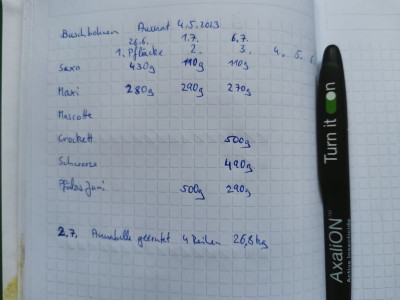 Buschbohnen Aussaat 4.5.2023
26.6. 1.7. 6.7.
1. Pflücke 2. 3. 4. 5. 6.
Saxa 430g 110g 110g
Maxi 280g 290g 270g
Mascotte
Crockett 500g
Schwarze 490g
500g 290g
2.7. Annabelle geerntet 4 Reihen 26,8kg
Turn it on
AxaliON™